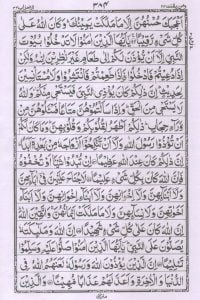 ٣٨٤
اَعْجَبَكَ حُسْنُهُنَّ اِلَّا مَا مَلَكَتْ يَمِيْنُكَ وَكَانَ اللّٰهُ عَلٰى
كُلِّ شَىْءٍ رَّقِيْبًا يٰۤاَيُّهَا الَّذِيْنَ اٰمَنُوْا لَا تَدْخُلُوْا بُيُوْتَ
النَّبِىِّ اِلَّاۤ اَنْ يُّؤْذَنَ لَكُمْ اِلٰى طَعَامٍ غَيْرَ نٰظِرِيْنَ اِنٰىهُ
وَلٰكِنْ اِذَا دُعِيْتُمْ فَادْخُلُوْا فَاِذَا طَعِمْتُمْ فَانْتَشِرُوْا وَلَا مُسْتَاْنِسِيْنَ
لِحَدِيْثٍ اِنَّ ذٰلِكُمْ كَانَ يُؤْذِى النَّبِىَّ فَيَسْتَحْىٖ مِنْكُمْ وَاللّٰهُ
لَا يَسْتَحْىٖ مِنَ الْحَقِّ وَاِذَا سَاَلْتُمُوْهُنَّ مَتَاعًا فَسْئَلُوْهُنَّ مِنْ
وَّرَآءِ حِجَابٍ ذٰلِكُمْ اَطْهَرُ لِقُلُوْبِكُمْ وَقُلُوْبِهِنَّ وَمَا كَانَ لَكُمْ
اَنْ تُؤْذُوْا رَسُوْلَ اللّٰهِ وَلَاۤ اَنْ تَنْكِحُوْۤا اَزْوَاجَهٗ مِنْۢ بَعْدِهٖۤ اَبَدًا
اِنَّ ذٰلِكُمْ كَانَ عِنْدَ اللّٰهِ عَظِيْمًا اِنْ تُبْدُوْا شَيْئًا اَوْ تُخْفُوْهُ
فَاِنَّ اللّٰهَ كَانَ بِكُلِّ شَىْءٍ عَلِيْمًا لَا جُنَاحَ عَلَيْهِنَّ فِىْۤ اٰبَآئِهِنَّ
وَلَاۤ اَبْنَآئِهِنَّ وَلَاۤ اِخْوَانِهِنَّ وَلَاۤ اَبْنَآءِ اِخْوَانِهِنَّ وَلَاۤ اَبْنَآءِ
اَخَوٰتِهِنَّ وَلَا نِسَآئِهِنَّ وَلَا مَا مَلَكَتْ اَيْمَانُهُنَّ وَاتَّقِيْنَ اللّٰهَ
اِنَّ اللّٰهَ كَانَ عَلٰى كُلِّ شَىْءٍ شَهِيْدًا اِنَّ اللّٰهَ وَمَلٰٓئِكَتَهٗ
يُصَلُّوْنَ عَلَى النَّبِىِّ يٰۤاَيُّهَا الَّذِيْنَ اٰمَنُوْا صَلُّوْا عَلَيْهِ وَسَلِّمُوْا
تَسْلِيْمًا اِنَّ الَّذِيْنَ يُؤْذُوْنَ اللّٰهَ وَرَسُوْلَهٗ لَعَنَهُمُ اللّٰهُ فِى
الدُّنْيَا وَالْاٰخِرَةِ وَاَعَدَّ لَهُمْ عَذَابًا مُّهِيْنًا وَالَّذِيْنَ